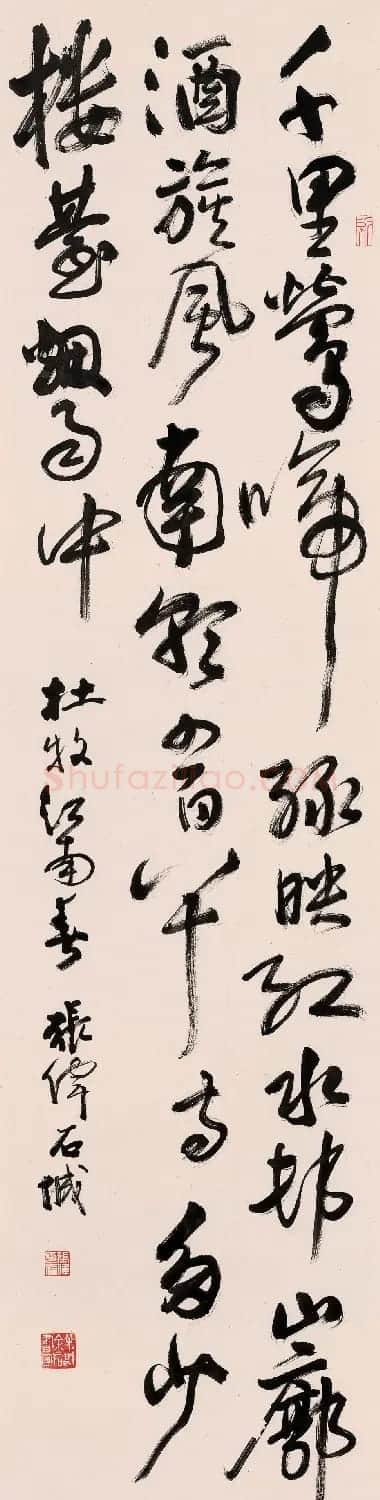 千里鶯啼緑映紅水邨山廓
酒旗風南朝四百八十寺多少
樓臺烟雨中
杜牧江南春 張偉石城
Shufaziliao.com